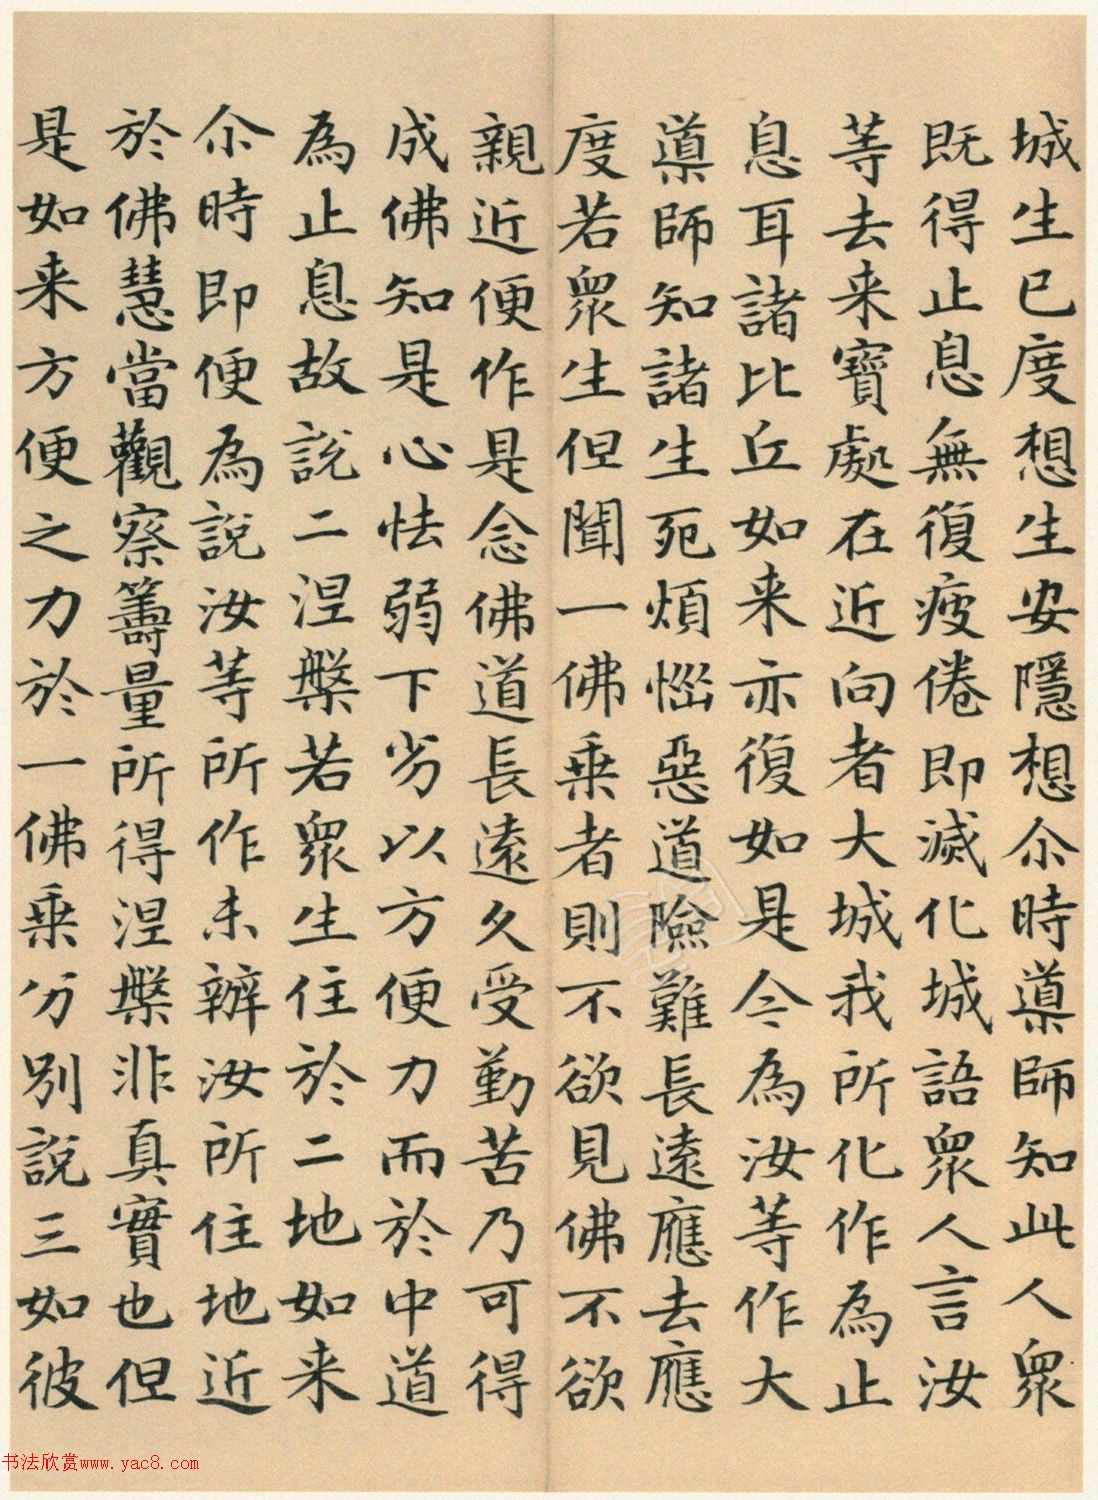 城生已度想生安隱想尒時導師知此人眾
既得止息無復疲倦即滅化城語眾人言汝
等去来寶處在近向者大城我所化作為止
息耳諸比丘如来亦復如是今為汝等作大
導師知諸生死煩惱惡道險難長遠應去應
度若眾生但聞一佛乗者則不欲見佛不欲
親近便作是念佛道長遠久受勤苦乃可得
成佛知是心怯弱下劣以方便力而於中道
為止息故說二涅槃若眾生住於二地如来
尒時即便為說汝等所作未辦汝所住地近
於佛慧當觀察籌量所得涅槃非真實也但
是如来方便之力於一佛乗分別說三如彼
书法欣赏www.yac8.com